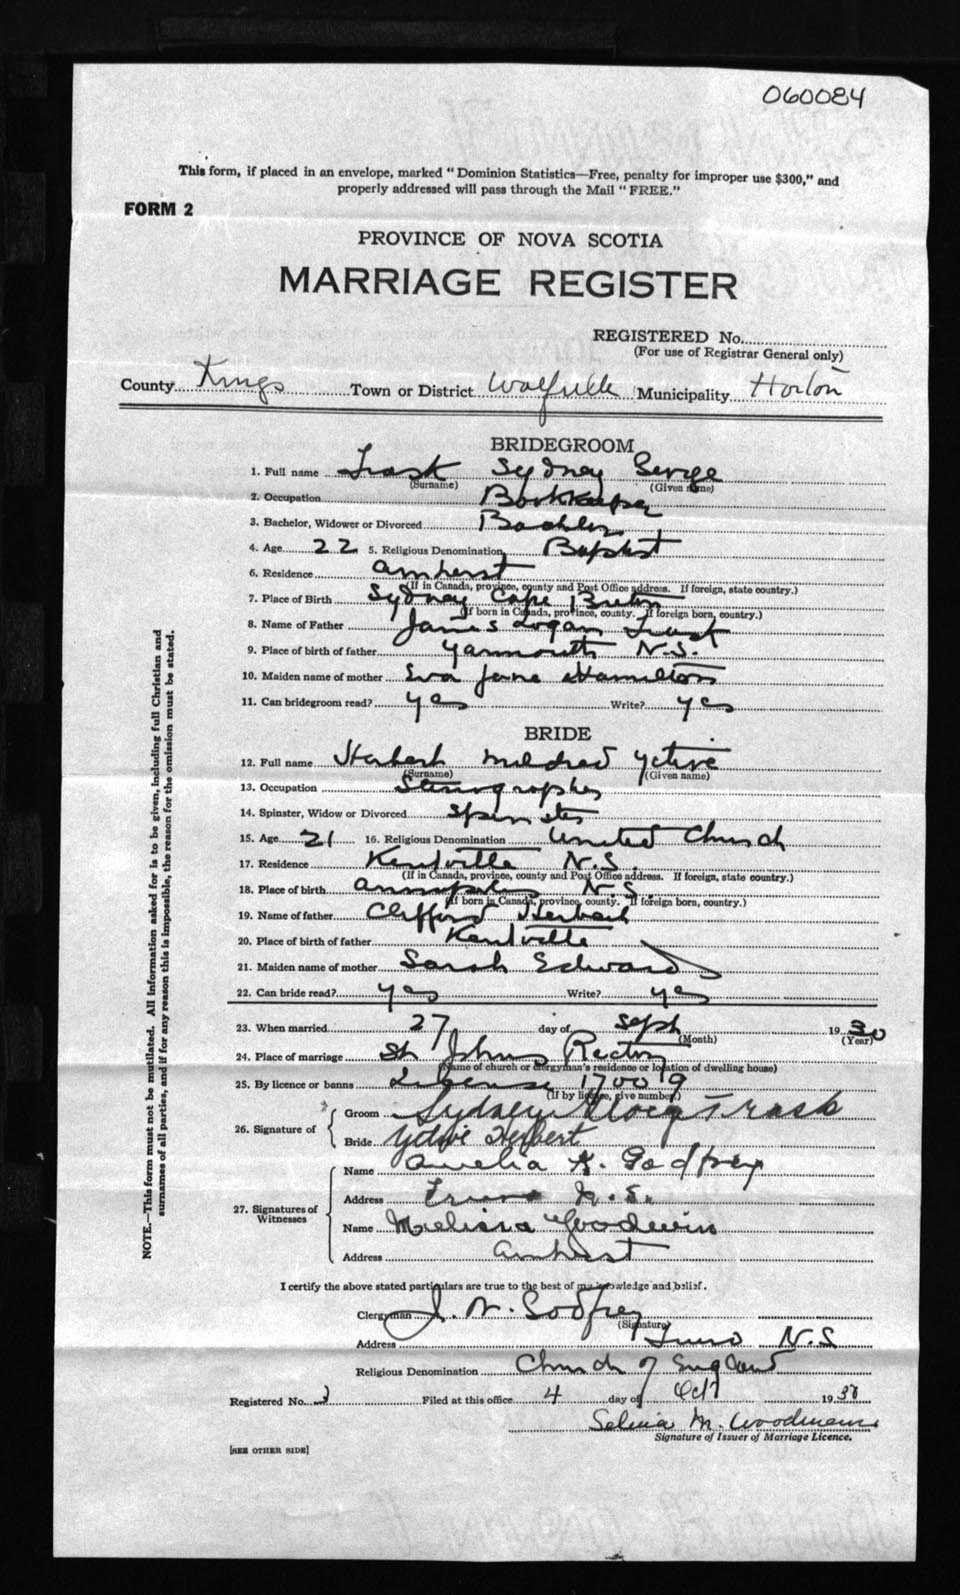 060084
This form, if placed in an envelope, marked "Dominion Statistics—Free, penalty for improper use $300," and
properly addressed will pass through the Mail "FREE."
FORM 2
PROVINCE OF NOVA SCOTIA
MARRIAGE REGISTER
REGISTERED No.
(For use of Registrar General only)
County Kings Town or District Wolfville Municipality Horton
BRIDEGROOM
1. Full name Trask Sydney
(Surname) (Given name)
2. Occupation Bookkeeper
3. Bachelor, Widower or Divorced Bachelor
4. Age 22 5. Religious Denomination Baptist
6. Residence Amherst
(If in Canada, province, county and Post Office address. If foreign, state country.)
7. Place of Birth Sydney Cape Breton
(If born in Canada, province, county. If foreign born, country.)
8. Name of Father James Logan Trask
9. Place of birth of father Yarmouth N.S.
10. Maiden name of mother Eva Jane Hamilton
11. Can bridegroom read? yes Write? yes
BRIDE
12. Full name Herbert Mildred
(Surname) (Given name)
13. Occupation Stenographer
14. Spinster, Widow or Divorced Spinster
15. Age 21 16. Religious Denomination United Church
17. Residence Kentville N.S.
(If in Canada, province, county and Post Office address. If foreign, state country.)
18. Place of birth Annapolis N.S.
(If born in Canada, province, county. If foreign born, country.)
19. Name of father Clifford Herbert
20. Place of birth of father Kentville
21. Maiden name of mother Sarah Edwards
22. Can bride read? yes Write? yes
23. When married 27 day of Sept 1930
(Month) (Year)
24. Place of marriage St Johns Rectory
(Name of church or clergyman's residence or location of dwelling house)
25. By licence or banns License 170019
(If by licence, give number.)
26. Signature of
Groom Sydney Trask
Bride Herbert
27. Signatures of Witnesses
Name Amelia K. Godfrey
Address Truro N.S.
Name Melissa Goodwin
Address Amherst
I certify the above stated particulars are true to the best of my knowledge and belief.
Clergyman J. W. Godfrey
(Signature)
Address Truro N.S
Religious Denomination Church of England
Registered No. 2 Filed at this office 4 day of Oct 1930
Selina M. Woodman
Signature of Issuer of Marriage Licence.
[SEE OTHER SIDE]
NOTE.—This form must not be mutilated. All information asked for is to be given, including full Christian and
surnames of all parties, and if for any reason this is impossible, the reason for the omission must be stated.